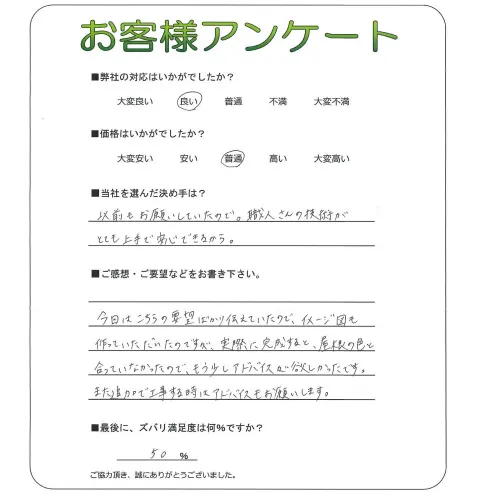 お客様アンケート
■弊社の対応はいかがでしたか？
大変良い 良い 普通 不満 大変不満
■価格はいかがでしたか？
大変安い 安い 普通 高い 大変高い
■当社を選んだ決め手は？
以前もお願いしていたので。職人さんの技術が
とても上手で安心できるから。
■ご感想・ご要望などをお書き下さい。
今日はこちらの要望ばかり伝えていたので、イメージ図も
作っていただいたのですが、実際に完成すると、屋根の色と
合っていなかったので、もう少しアドバイスが欲しかったです。
また追加で工事する時はアドバイスもお願いします。
■最後に、ズバリ満足度は何%ですか？
50 %
ご協力頂き、誠にありがとうございました。